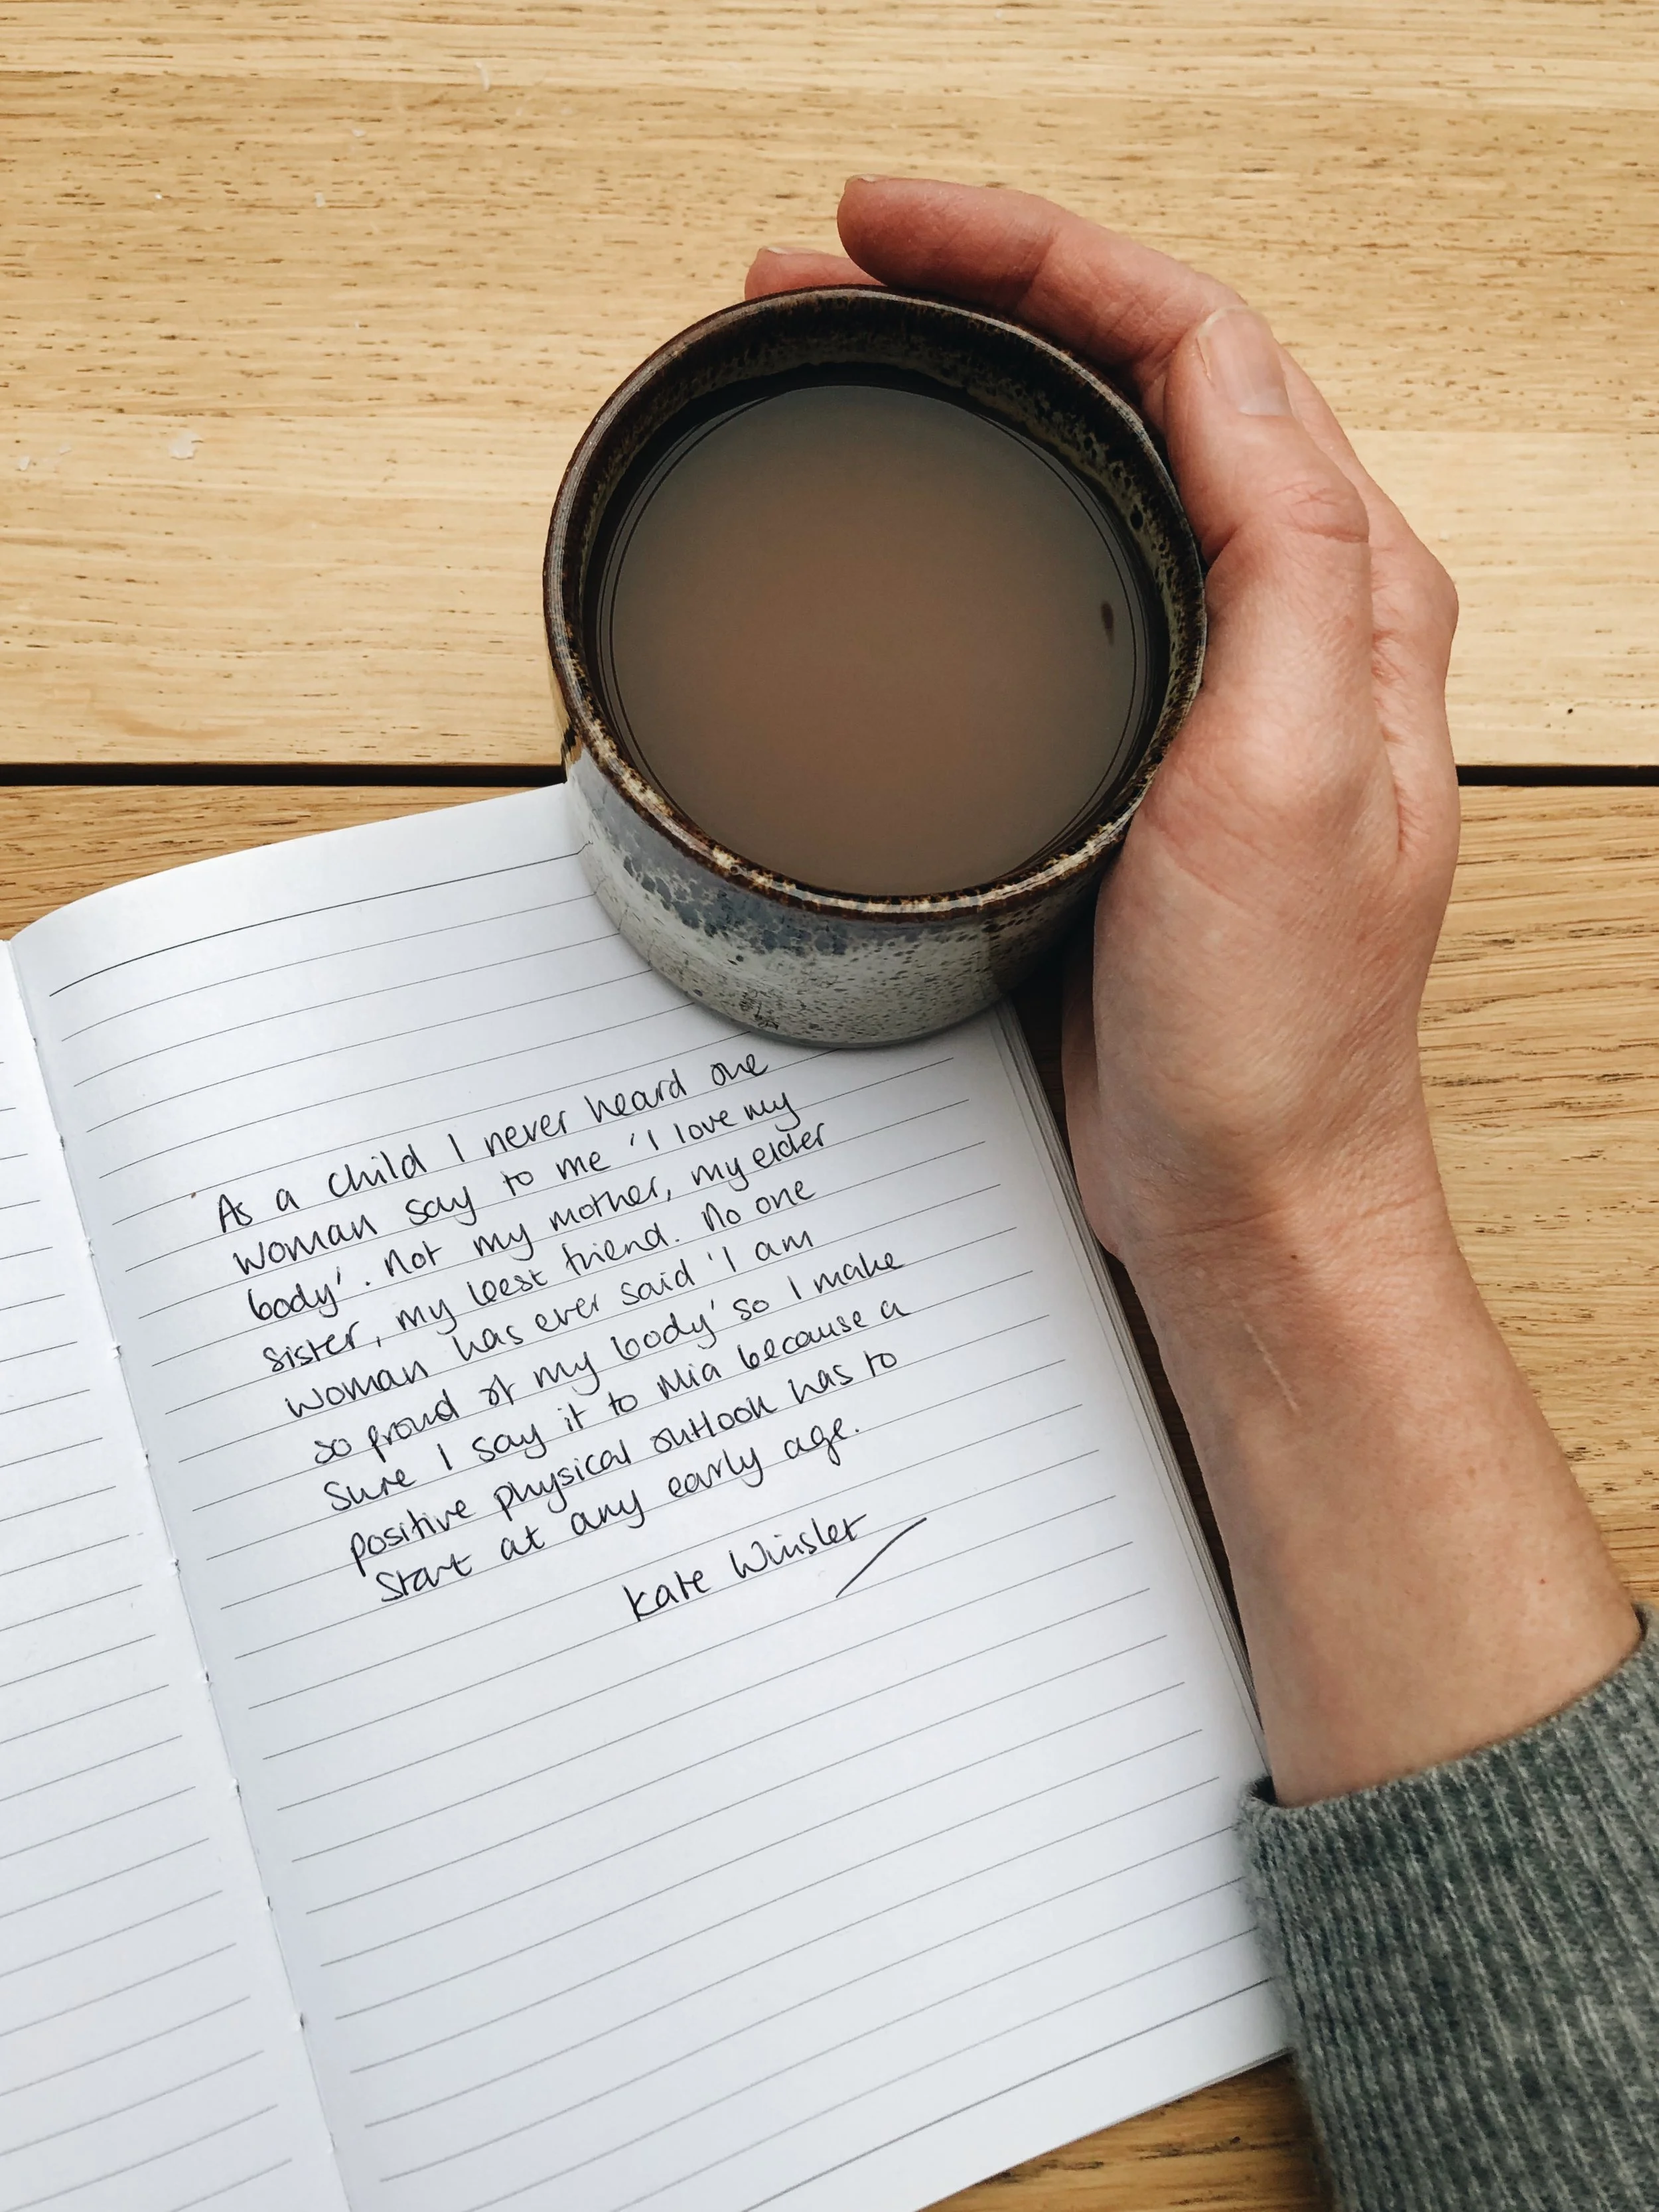 As a child I never heard one
woman say to me 'I love my
body'. Not my mother, my elder
sister, my best friend. No one
woman has ever said 'I am
so proud of my body' so I make
sure I say it to Mia because a
positive physical outlook has to
start at any early age.
Kate Winslet